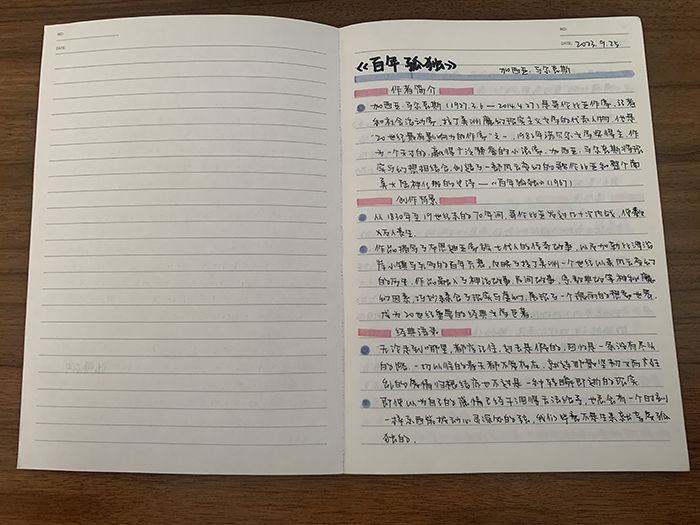 NO.
DATE.
NO.
DATE. 2023.9.25
《百年孤独》
加西亚·马尔克斯
作者简介
加西亚·马尔克斯(1927.3.6—2014.4.17)是哥伦比亚作家、记者
和社会活动家,拉丁美洲魔幻现实主义文学的代表人物,他是
"20世纪最有影响力的作家"之一,1982年诺贝尔文学奖得主。作
为一个天才的、赢得广泛赞誉的小说家,加西亚·马尔克斯将现
实与幻想相结合,创造了一部风云变幻的哥伦比亚和整个南
美大陆神化般的史诗—《百年孤独》(1967)
创作背景
从1830年至19世纪末的70年间,哥伦比亚发起几十次内战,使数
万人丧生。
作品描写了布恩迪亚家族七代人的传奇故事,以及加勒比海沿
岸小镇马孔多的百年兴衰,反映了拉丁美洲一个世纪以来风云变幻
的历史。作品融入了神话故事、民间故事、宗教典故等神秘
的因素,巧妙糅合了现实与虚幻,展现了一个瑰丽的想象世界,
成为20世纪重要的经典文学巨著。
经典语录
无论走到哪里,都应记住,过去是假的,回忆是一条没有尽头
的路,一切以往的春天都不复存在,就连那最坚韧而又狂
乱的爱情归根结底也不过是一种转瞬即逝的现实
即使以为自己的感情已经干涸得无法给予,也总会有一个时刻
一样东西能拨动心灵深处的弦,我们毕竟不是生来就享受孤
独的。